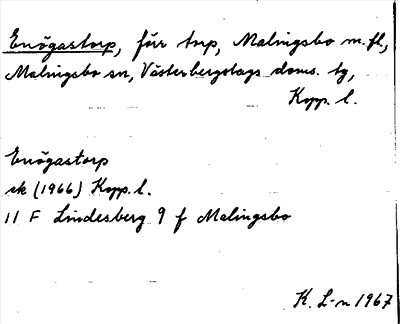 Enögastorp, förr torp, Malingsbo m.fl,
Malingsbo sn, Västerbergslags doms. tg,
Kopp. l.
Enögastorp
ek (1966) Kopp. l.
11 F Lindesberg 9 f Malingsbo
K. L-n 1967